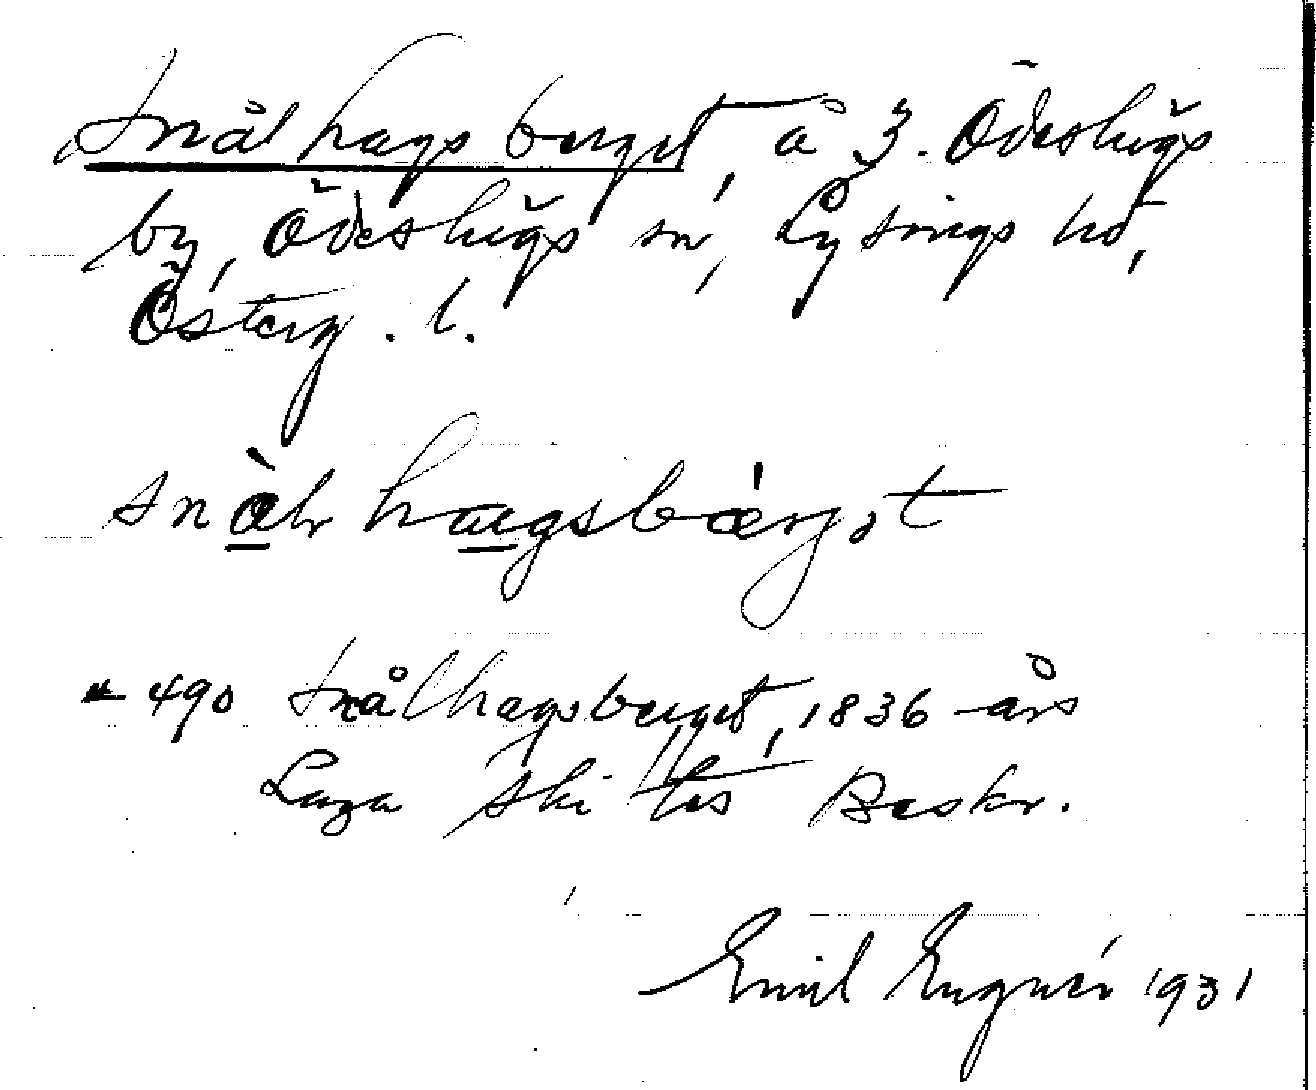 Snålhagsberget, å 3. Ödeshögs
by, Ödeshögs sn, Lysings hd,
Österg. l.
snålr hagsbærjət
490 Snålhagsberget, 1836 års
Laga skiftes Beskr.
Emil 1931